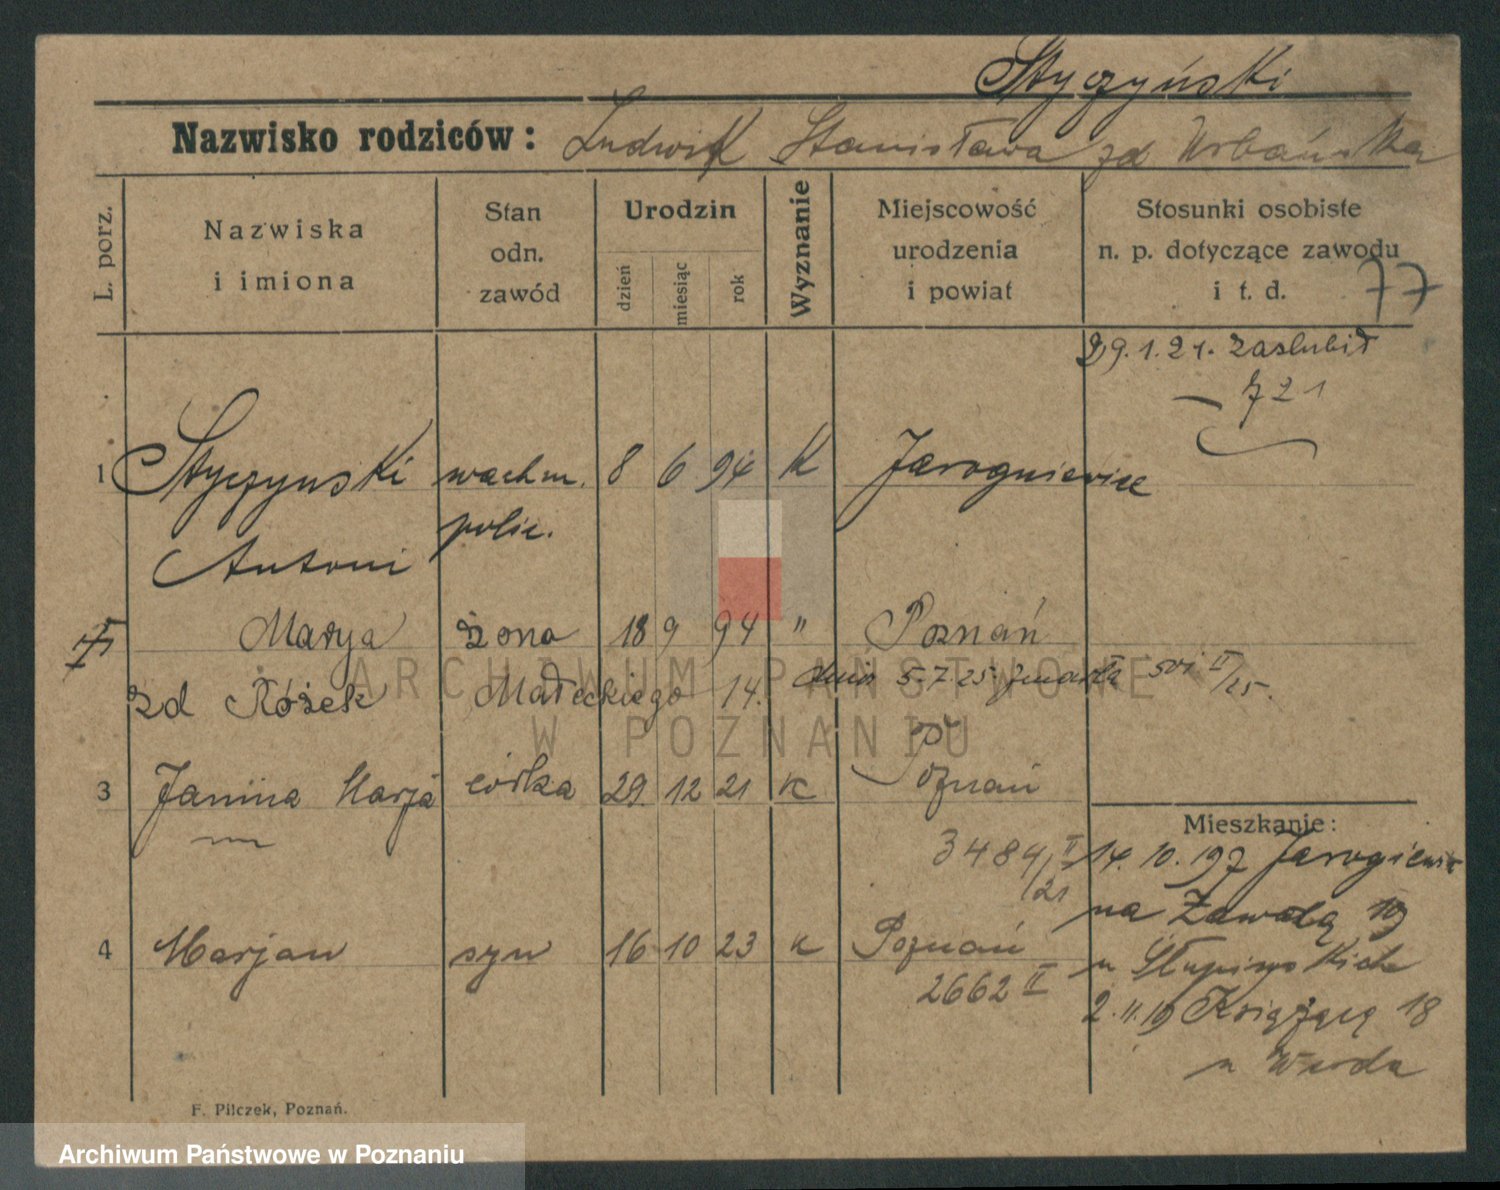 Styczyński
Nazwisko rodziców: Ludwik Stanisława zd Urbańska
L. porz.
Nazwiska
i imiona
Stan
odn.
zawód
Urodzin
dzień
miesiąc
rok
Wyznanie
Miejscowość
urodzenia
i powiat
Stosunki osobiste
n. p. dotyczące zawodu
i t. d.
77
29.1.21. zaslubił
721
1 Styczynski wachm. 8 6 94 K Jarogniewice
polic.
Antoni
Marya żona 18 9 94 " Poznań
zd Różek Małeckiego 14. dnia 5.7.25 zmarła 501 II/25.
3 Janina Marja córka 29 12 21 K Poznań
3484/II
21
4 Marjan syn 16 10 23 K Poznań
2662 II
Mieszkanie:
14. 10. 197
na Zawadą 19
u Słupinskich
2.11.19 18
u Warda
F. Pilczek, Poznań.
ARCHIWUM PAŃSTWOWE
W POZNANIU
Archiwum Państwowe w Poznaniu